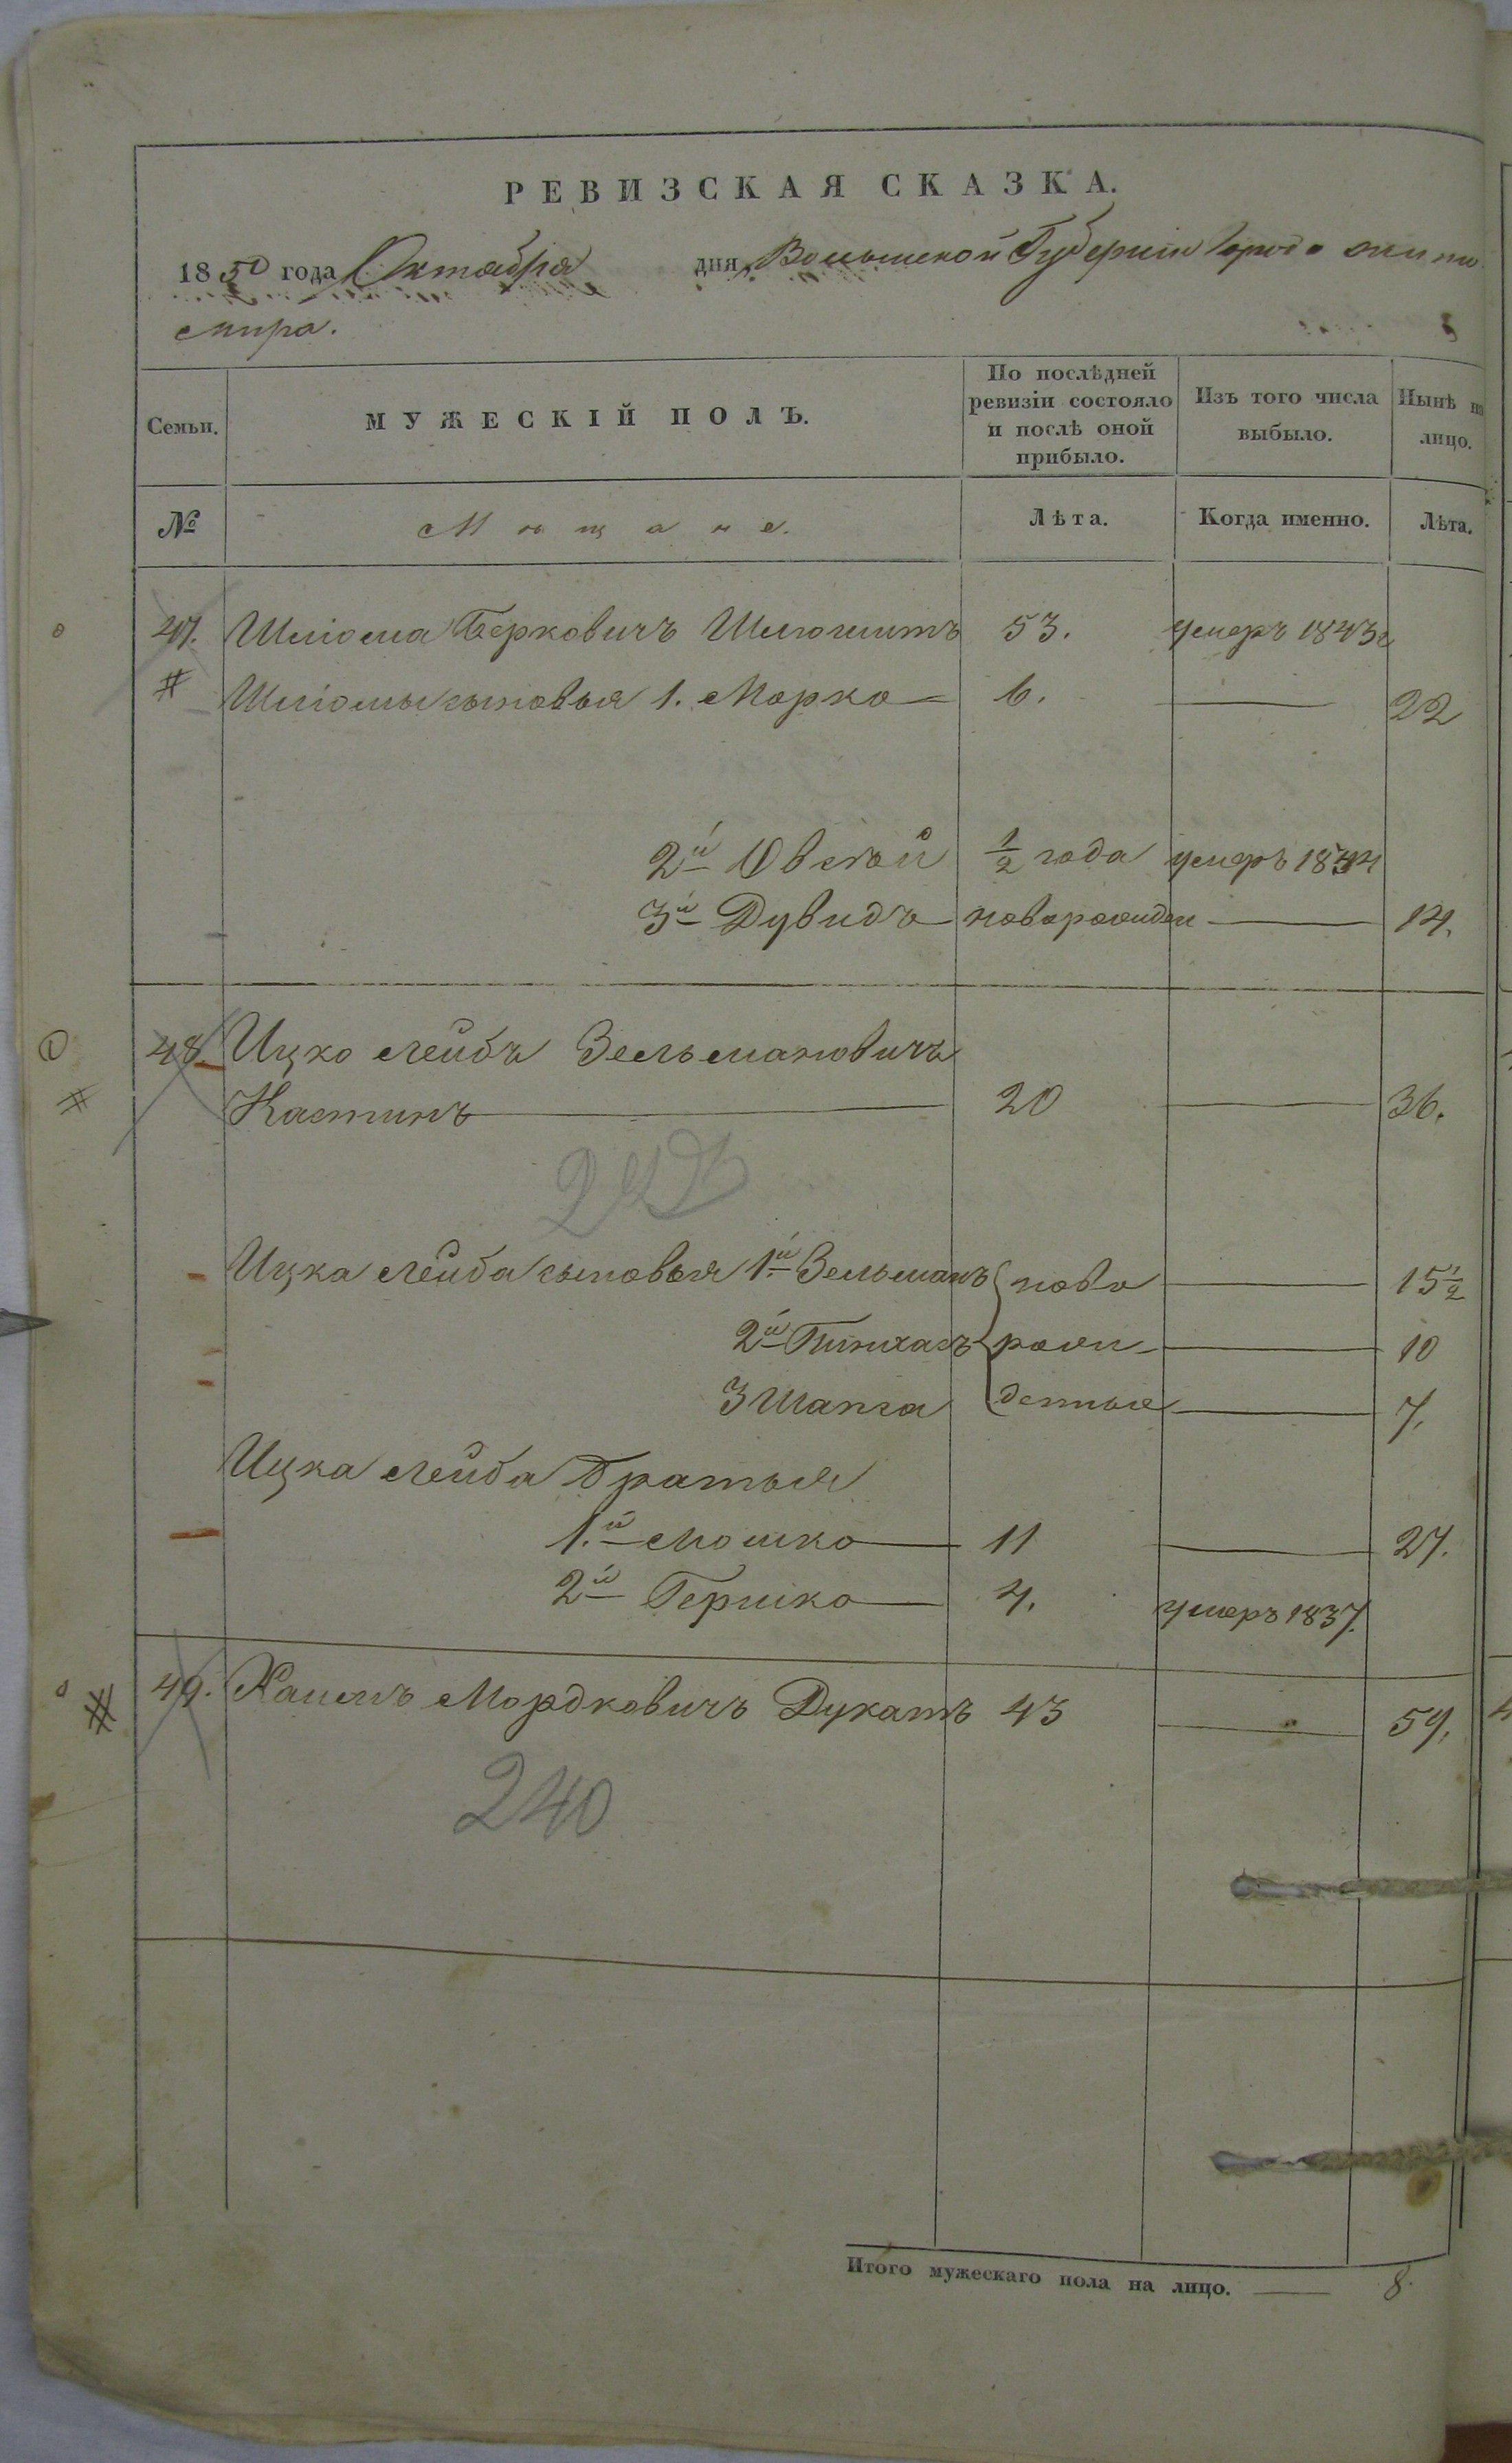 РЕВИЗСКАЯ СКАЗКА.
1850 года Октября дня Волынской Губерніи Города Жито
мира.
Семьи. МУЖЕСКІЙ ПОЛЪ. По послѣдней ревизіи состояло и послѣ оной прибыло. Изъ того числа выбыло. Нынѣ на лицо.
№ Мѣщане. Лѣта. Когда именно. Лѣта.
47. Шліома Берковичъ 53. умеръ 1843г
# Шліомы сыновья 1. Морко 6. 22
2й Овсѣй ½ года умеръ 1844
3й Дувидъ новорожден 14.
48. Ицко Лейбъ Зельмановичъ
# Кастинъ 20 36.
Ицка Лейба сыновья 1й Зельманъ ново 15½
2й Пинхасъ рож 10
3 Шапса денные 7.
Ицка Лейба братья
1.й Мошко 11 27.
2й Гершко 4. умеръ 1837.
# 49. Хаимъ Мордковичъ Дукатъ 43 59.
240
Итого мужескаго пола на лицо. 8.